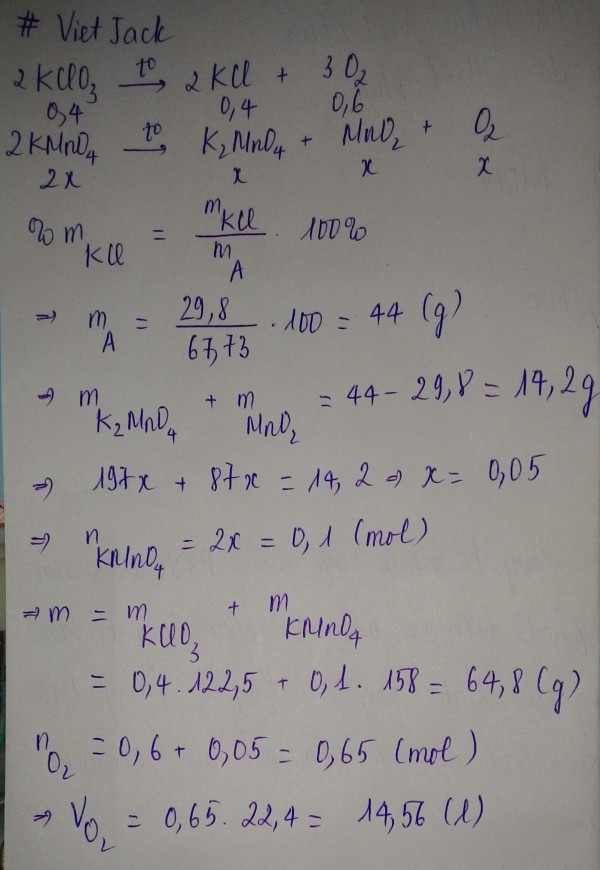 # VietJack
2KClO₃ →(t⁰) 2KCl + 3O₂
0,4 0,4 0,6
2KMnO₄ →(t⁰) K₂MnO₄ + MnO₂ + O₂
2x x x x
%m_KCl = m_KCl / m_A . 100%
⇒ m_A = 29,8 / 67,73 . 100 = 44 (g)
⇒ m_K₂MnO₄ + m_MnO₂ = 44 - 29,8 = 14,2g
⇒ 197x + 87x = 14,2 ⇒ x = 0,05
⇒ n_KMnO₄ = 2x = 0,1 (mol)
⇒ m = m_KClO₃ + m_KMnO₄
= 0,4.122,5 + 0,1. 158 = 64,8 (g)
n_O₂ = 0,6 + 0,05 = 0,65 (mol)
⇒ V_O₂ = 0,65. 22,4 = 14,56 (l)